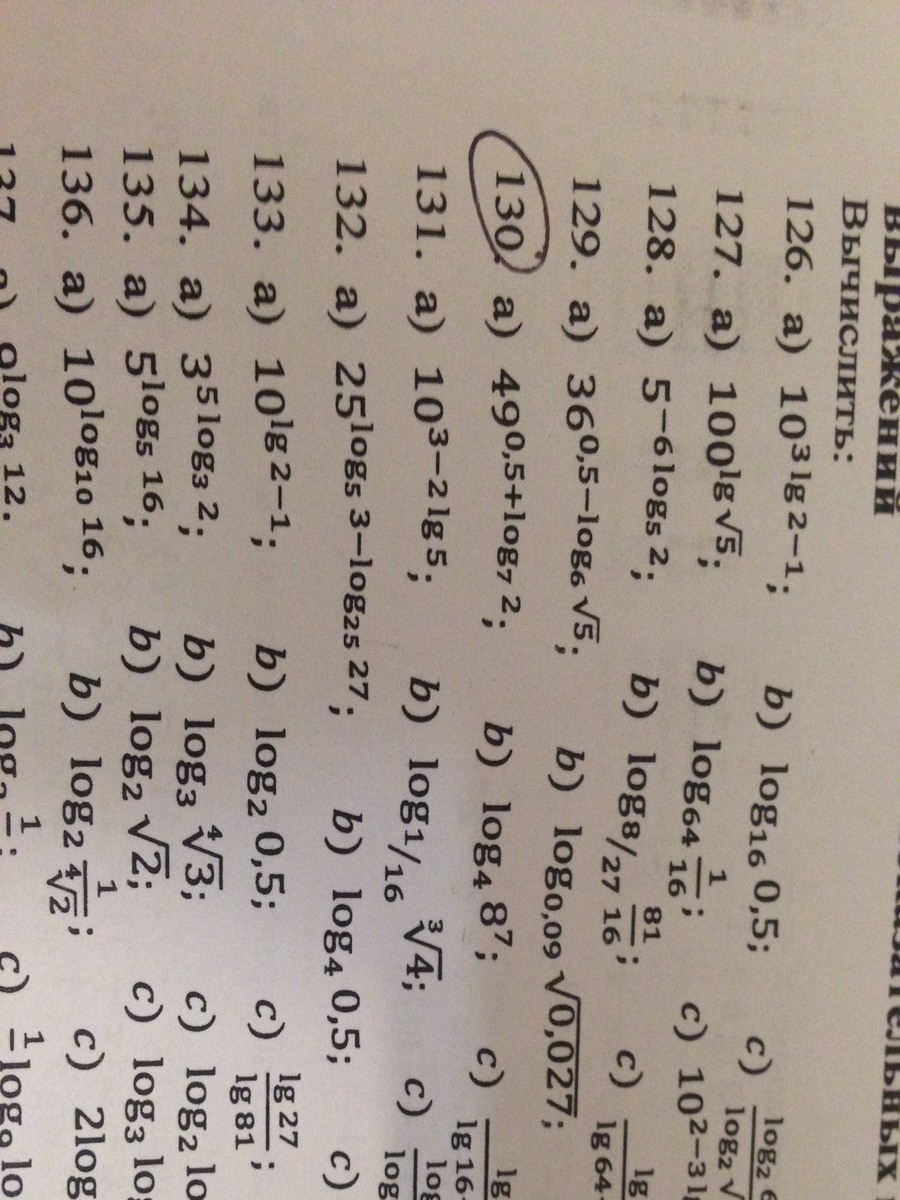 выражений
Вычислить:
126. a) 10^{3 lg 2−1}; b) log_{16} 0,5; c) log_2
log_2 √
127. a) 100^{lg √5}; b) log_{64} 1/16; c) 10^{2−3 lg
128. a) 5^{−6 log_5 2}; b) log_{8/27} 81/16; c) lg
lg 64
129. a) 36^{0,5−log_6 √5}; b) log_{0,09} √0,027;
130. a) 49^{0,5+log_7 2}; b) log_4 8^7; c) lg
lg 16
131. a) 10^{3−2 lg 5}; b) log_{1/16} ∛4; c) log
log
132. a) 25^{log_5 3−log_{25} 27}; b) log_4 0,5; c)
133. a) 10^{lg 2−1}; b) log_2 0,5; c) lg 27/lg 81;
134. a) 3^{5 log_3 2}; b) log_3 ∜3; c) log_2
135. a) 5^{log_5 16}; b) log_2 √2; c) log_3
136. a) 10^{log_{10} 16}; b) log_2 1/∜2; c) 2log